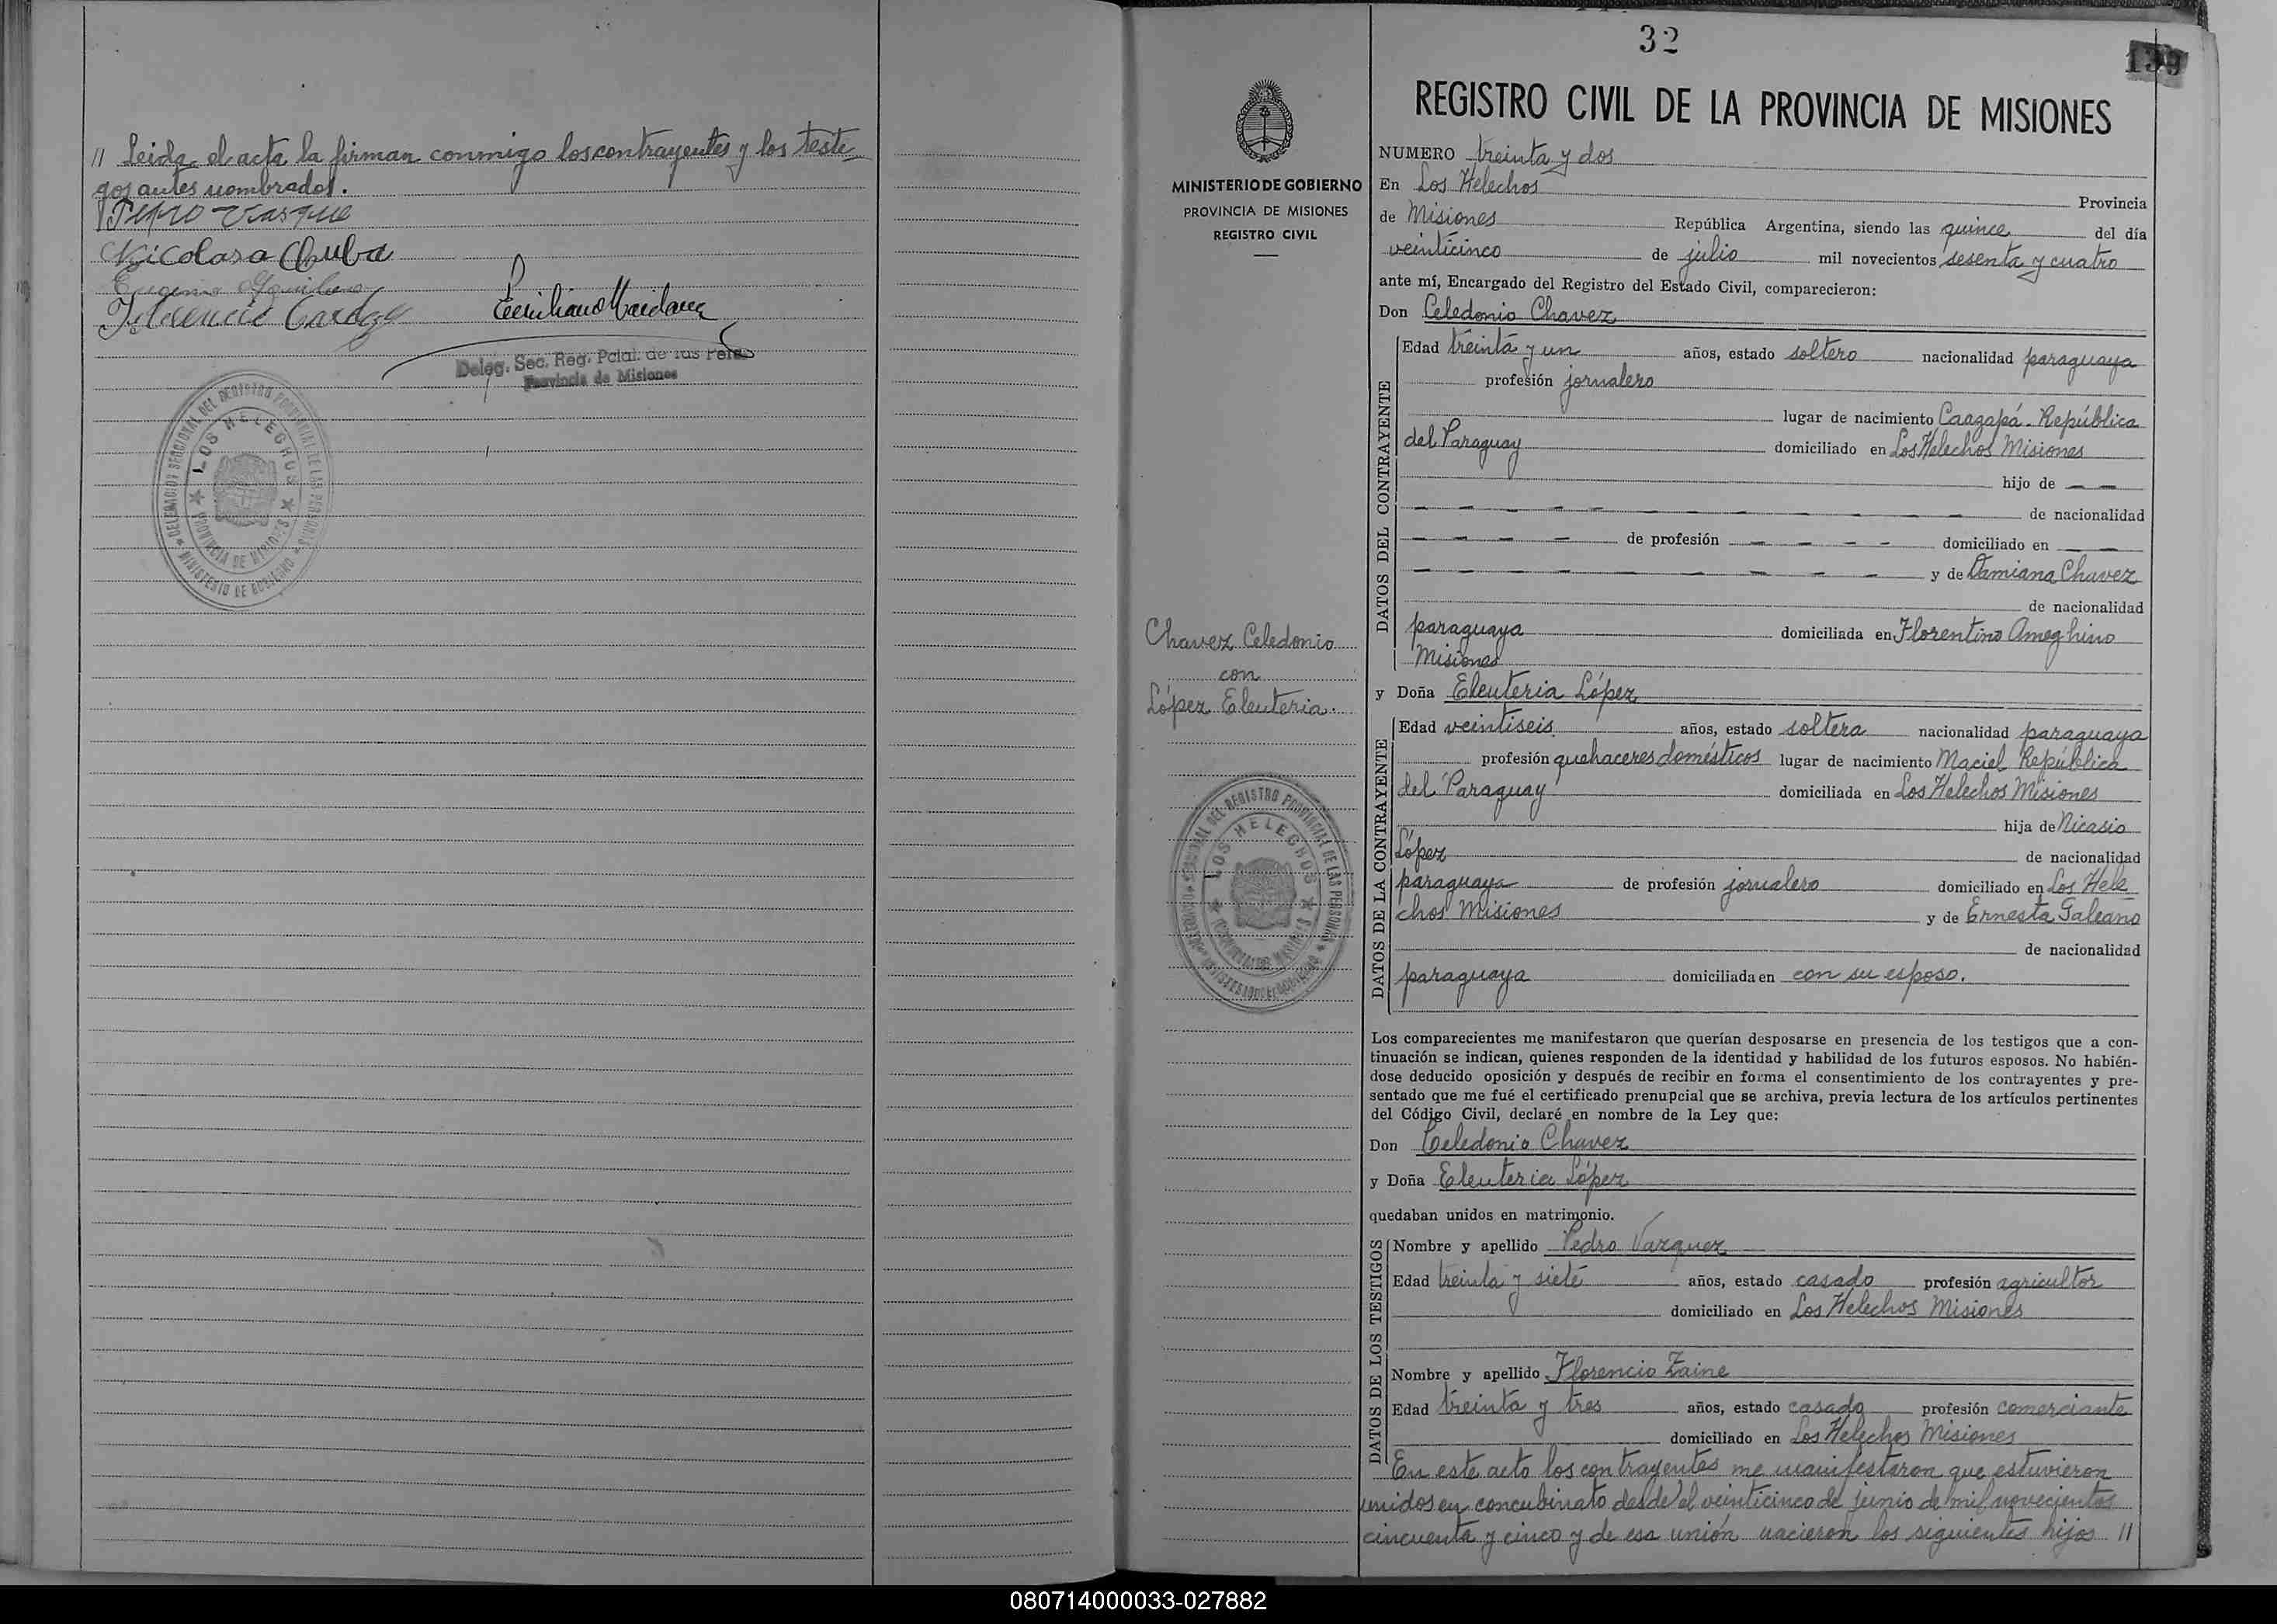 // Leida el acta la firman conmigo los contrayentes y los testi-
gos antes nombrados.
Nicolasa
Florencio
Deleg. Sec. Reg. Pcial. de las Pers.
Provincia de Misiones
DELEGACION SECCIONAL DEL REGISTRO PROVINCIAL DE LAS PERSONAS
MINISTERIO DE GOBIERNO
LOS HELECHOS
PROVINCIA DE MISIONES
32
139
REGISTRO CIVIL DE LA PROVINCIA DE MISIONES
MINISTERIO DE GOBIERNO
PROVINCIA DE MISIONES
REGISTRO CIVIL
NUMERO treinta y dos
En Los Helechos Provincia
de Misiones República Argentina, siendo las quince del día
veinticinco de julio mil novecientos sesenta y cuatro
ante mí, Encargado del Registro del Estado Civil, comparecieron:
Don Celedonio Chavez
DATOS DEL CONTRAYENTE
Edad treinta y un años, estado soltero nacionalidad paraguaya
profesión jornalero
lugar de nacimiento Caazapá. República
del Paraguay domiciliado en Los Helechos Misiones
hijo de — —
— — — — — — — — — — — — de nacionalidad
— — — — de profesión — — — — domiciliado en — —
— — — — — — — — — — y de Damiana Chavez
de nacionalidad
paraguaya domiciliada en Florentino Ameghino
Misiones
Chavez Celedonio
con
López Eleuteria.
y Doña Eleuteria López
DATOS DE LA CONTRAYENTE
Edad veintiseis años, estado soltera nacionalidad paraguaya
profesión quehaceres domésticos lugar de nacimiento Maciel República
del Paraguay domiciliada en Los Helechos Misiones
hija de Nicasio
López de nacionalidad
paraguaya de profesión jornalero domiciliado en Los Hele
chos Misiones y de Ernesta Galeano
de nacionalidad
paraguaya domiciliada en con su esposo.
LOS HELECHOS
Los comparecientes me manifestaron que querían desposarse en presencia de los testigos que a con-
tinuación se indican, quienes responden de la identidad y habilidad de los futuros esposos. No habién-
dose deducido oposición y después de recibir en forma el consentimiento de los contrayentes y pre-
sentado que me fué el certificado prenupcial que se archiva, previa lectura de los artículos pertinentes
del Código Civil, declaré en nombre de la Ley que:
Don Celedonio Chavez
y Doña Eleuteria López
quedaban unidos en matrimonio.
DATOS DE LOS TESTIGOS
Nombre y apellido Pedro Vazquez
Edad treinta y siete años, estado casado profesión agricultor
domiciliado en Los Helechos Misiones
Nombre y apellido Florencio Zaine
Edad treinta y tres años, estado casado profesión comerciante
domiciliado en Los Helechos Misiones
En este acto los contrayentes me manifestaron que estuvieron
unidos en concubinato desde el veinticinco de junio de mil novecientos
cincuenta y cinco y de esa unión nacieron los siguientes hijos //
080714000033-027882